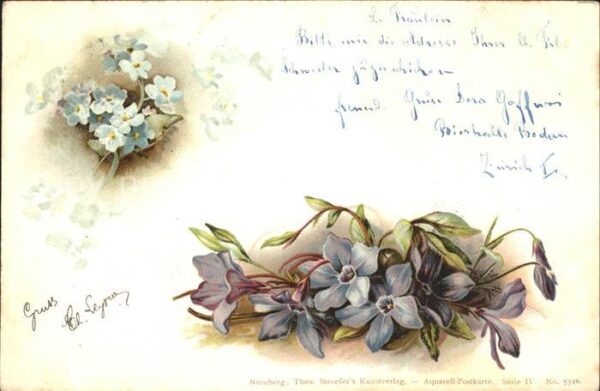 L. Fräulein
Bitte mir die Adresse Ihrer lb. Frl.
Schwester zuzuschicken
freund. Gruss Dora
Bierhalle Bodan
Zürich I
Gruss
Nürnberg; Theo. Stroefer's Kunstverlag. — Aquarell-Postkarte. Serie IV. No. 5340.